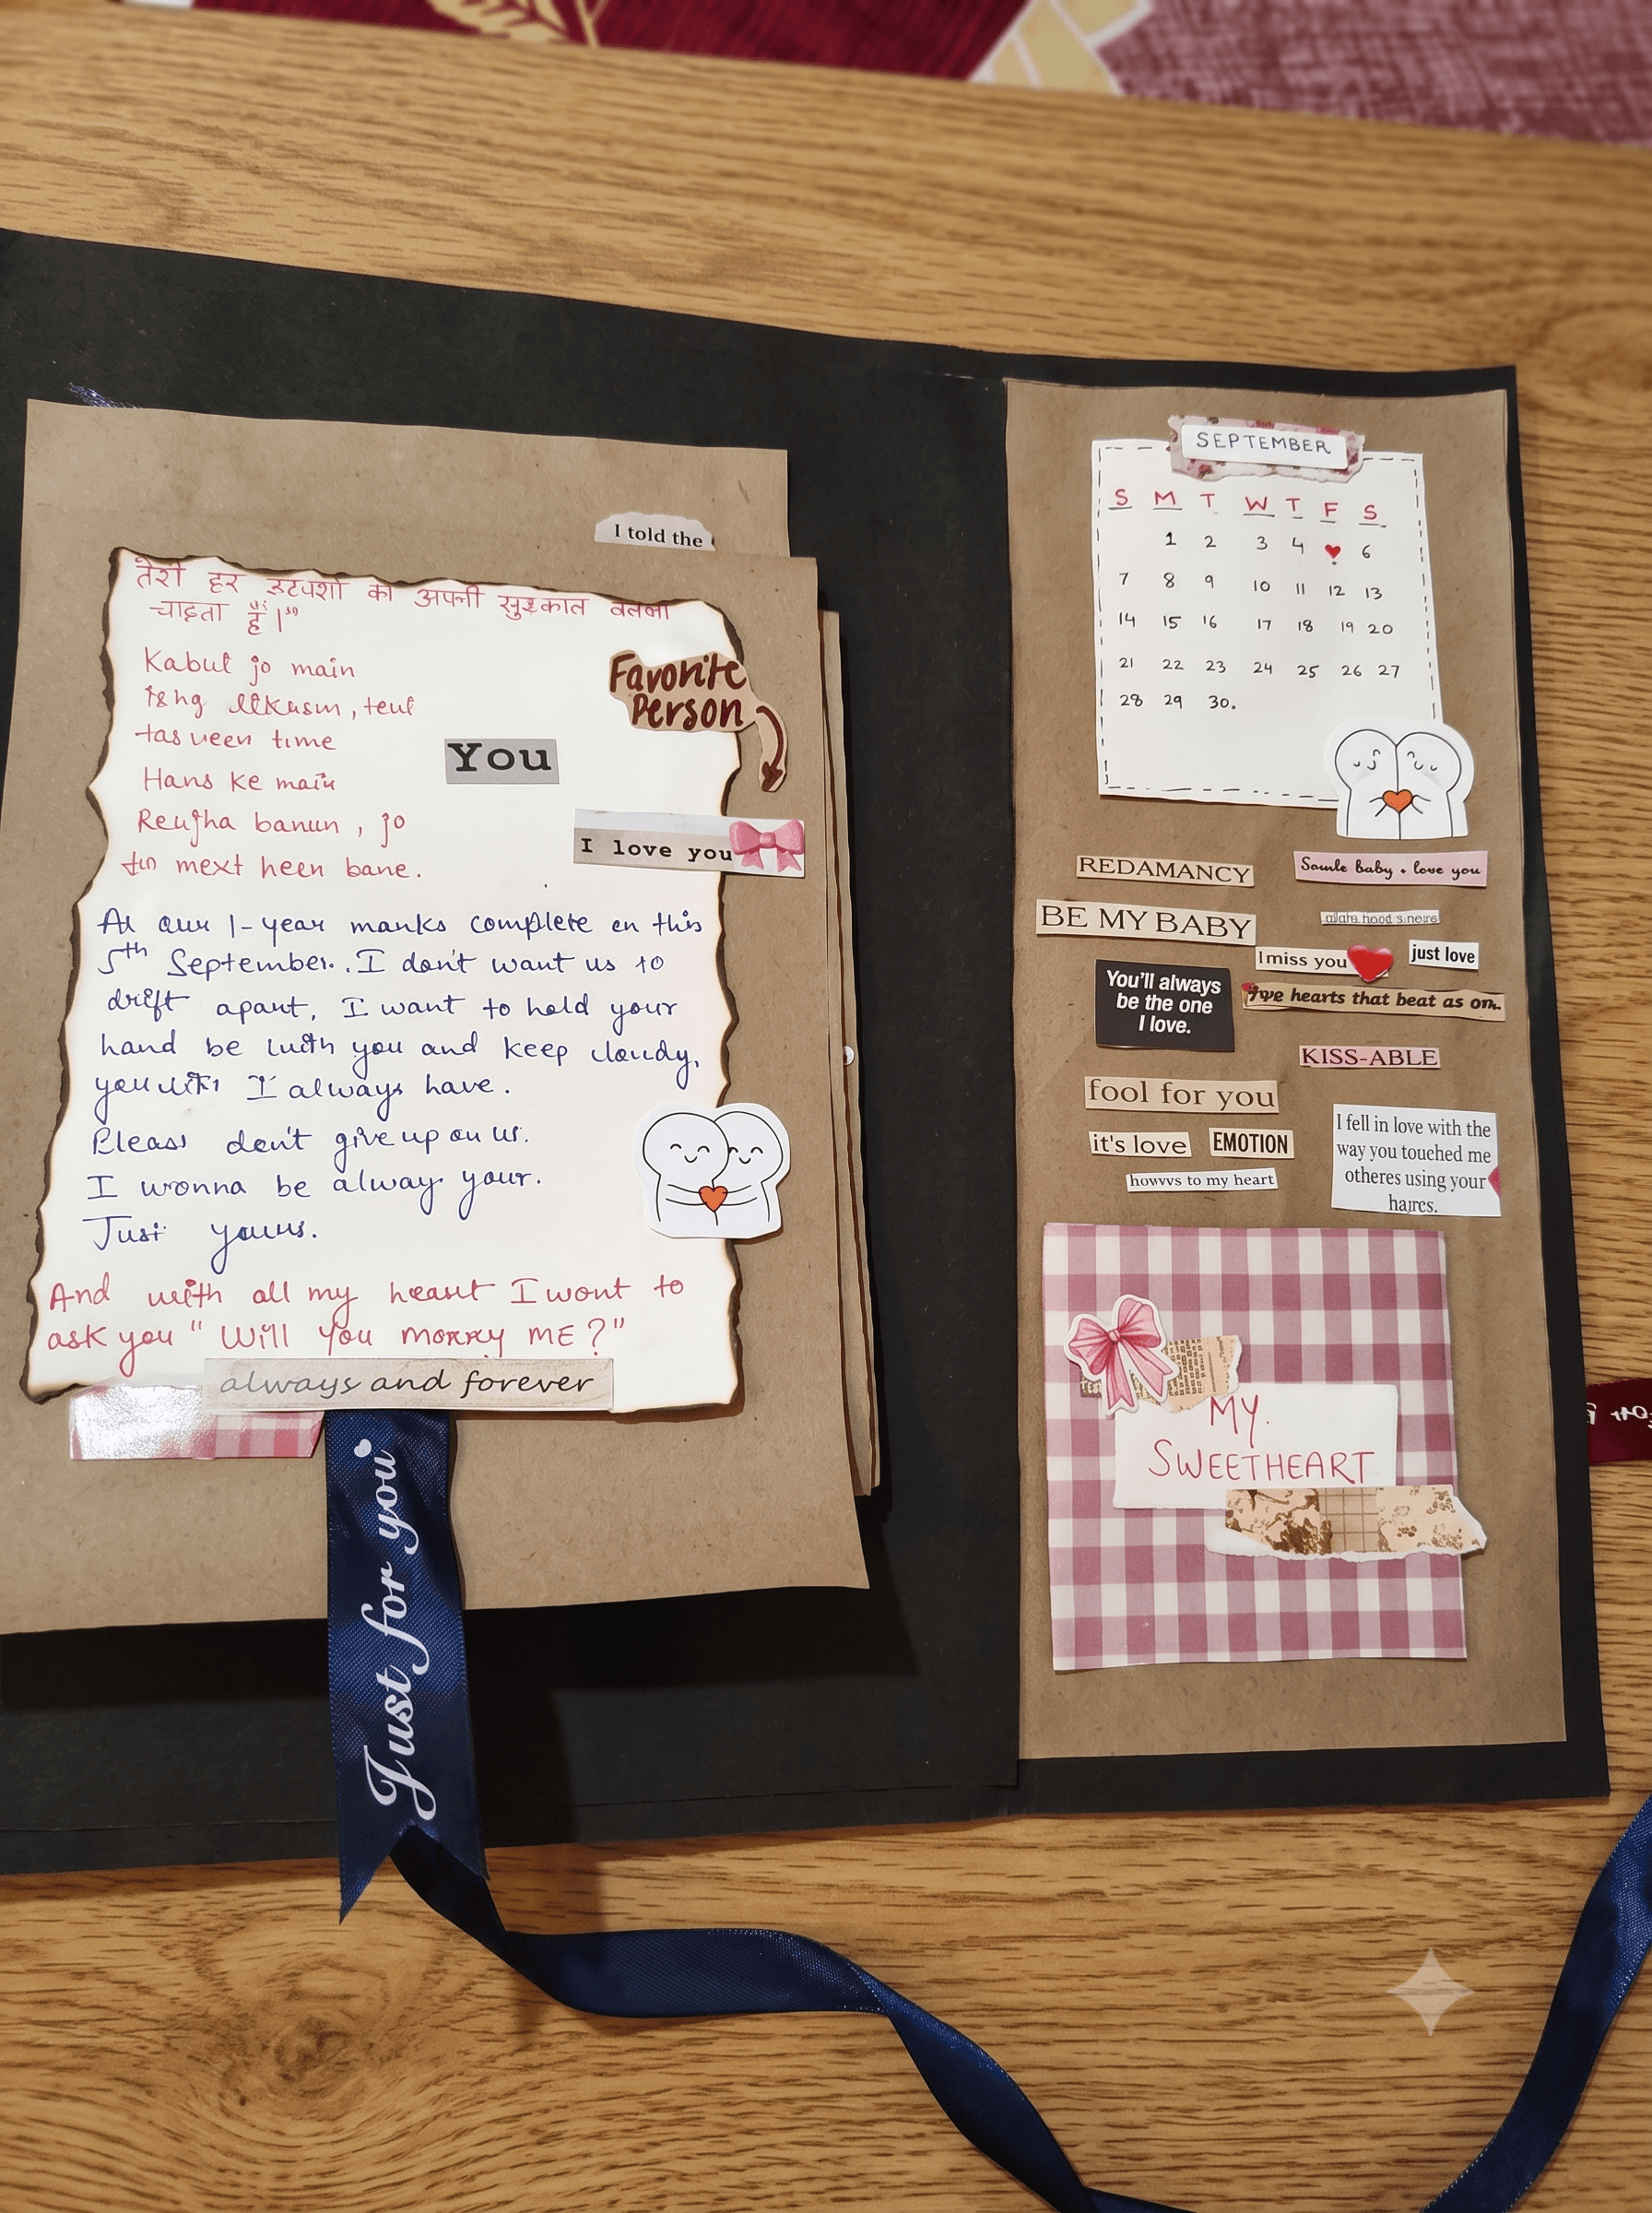 I told the
तेरी हर का अपनी
चाहता हूँ।"
Kabul jo main
Hans ke main
banun, jo
bane.
Favorite
Person
You
I love you
At our 1-year manks complete on this
5th September. I don't want us to
drift apart, I want to hold your
hand be with you and keep
I always have.
Pleass don't give up on us.
I wonna be alway your.
Just yours.
And with all my heart I wont to
ask you "Will You morry ME?"
always and forever
Just for you
SEPTEMBER
S M T W T F S
1 2 3 4 6
7 8 9 10 11 12 13
14 15 16 17 18 19 20
21 22 23 24 25 26 27
28 29 30.
REDAMANCY
baby . love you
BE MY BABY
I miss you
just love
You'll always
be the one
I love.
hearts that beat as
KISS-ABLE
fool for you
it's love
EMOTION
howvs to my heart
I fell in love with the
way you touched me
otheres using your
MY.
SWEETHEART